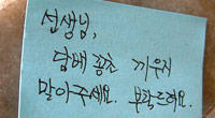 선생님,
담배 꽁초 끼우지
말아주세요. 부탁드려요.